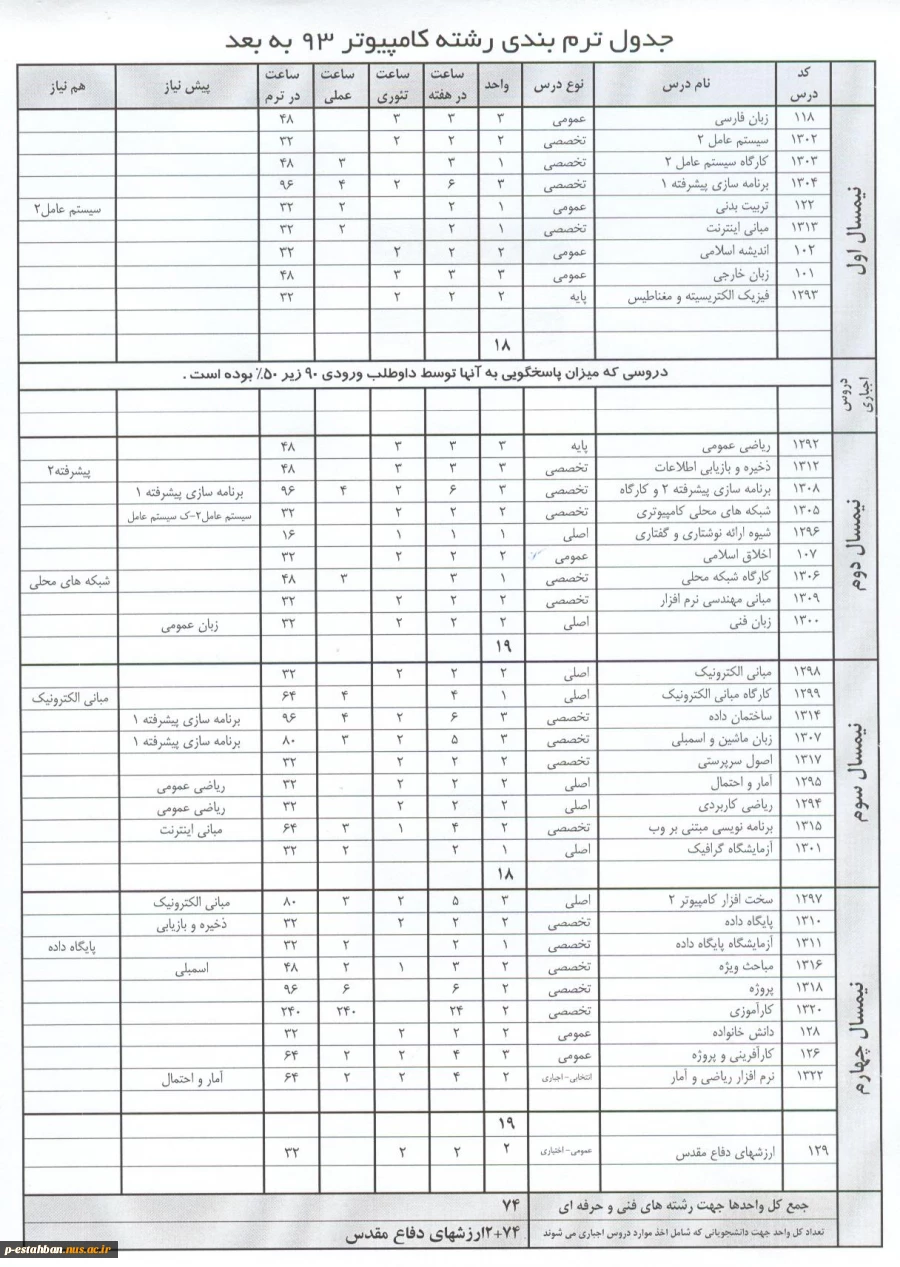 جدول ترم بندی رشته کامپیوتر ۹۳ به بعد
کد درس نام درس نوع درس واحد ساعت در هفته ساعت تئوری ساعت عملی ساعت در ترم پیش نیاز هم نیاز
نیمسال اول
۱۱۸ زبان فارسی عمومی ۳ ۳ ۳ ۴۸
۱۳۰۲ سیستم عامل ۲ تخصصی ۲ ۲ ۲ ۳۲
۱۳۰۳ کارگاه سیستم عامل ۲ تخصصی ۱ ۳ ۳ ۴۸
۱۳۰۴ برنامه سازی پیشرفته ۱ تخصصی ۳ ۶ ۲ ۴ ۹۶
۱۲۲ تربیت بدنی عمومی ۱ ۲ ۲ ۳۲ سیستم عامل۲
۱۳۱۳ مبانی اینترنت تخصصی ۱ ۲ ۲ ۳۲
۱۰۲ اندیشه اسلامی عمومی ۲ ۲ ۲ ۳۲
۱۰۱ زبان خارجی عمومی ۳ ۳ ۳ ۴۸
۱۲۹۳ فیزیک الکتریسیته و مغناطیس پایه ۲ ۲ ۲ ۳۲
۱۸
دروس اجباری
دروسی که میزان پاسخگویی به آنها توسط داوطلب ورودی ۹۰ زیر ۵۰٪ بوده است .
نیمسال دوم
۱۲۹۲ ریاضی عمومی پایه ۳ ۳ ۳ ۴۸
۱۳۱۲ ذخیره و بازیابی اطلاعات تخصصی ۳ ۳ ۳ ۴۸ پیشرفته۲
۱۳۰۸ برنامه سازی پیشرفته ۲ و کارگاه تخصصی ۳ ۶ ۲ ۴ ۹۶ برنامه سازی پیشرفته ۱
۱۳۰۵ شبکه های محلی کامپیوتری تخصصی ۲ ۲ ۲ ۳۲ سیستم عامل۲-ک سیستم عامل
۱۲۹۶ شیوه ارائه نوشتاری و گفتاری اصلی ۱ ۱ ۱ ۱۶
۱۰۷ اخلاق اسلامی عمومی ۲ ۲ ۲ ۳۲
۱۳۰۶ کارگاه شبکه محلی تخصصی ۱ ۳ ۳ ۴۸ شبکه های محلی
۱۳۰۹ مبانی مهندسی نرم افزار تخصصی ۲ ۲ ۲ ۳۲
۱۳۰۰ زبان فنی اصلی ۲ ۲ ۲ ۳۲ زبان عمومی
۱۹
نیمسال سوم
۱۲۹۸ مبانی الکترونیک اصلی ۲ ۲ ۲ ۳۲
۱۲۹۹ کارگاه مبانی الکترونیک اصلی ۱ ۴ ۴ ۶۴ مبانی الکترونیک
۱۳۱۴ ساختمان داده تخصصی ۳ ۶ ۲ ۴ ۹۶ برنامه سازی پیشرفته ۱
۱۳۰۷ زبان ماشین و اسمبلی تخصصی ۳ ۵ ۲ ۳ ۸۰ برنامه سازی پیشرفته ۱
۱۳۱۷ اصول سرپرستی تخصصی ۲ ۲ ۲ ۳۲
۱۲۹۵ آمار و احتمال اصلی ۲ ۲ ۲ ۳۲ ریاضی عمومی
۱۲۹۴ ریاضی کاربردی اصلی ۲ ۲ ۲ ۳۲ ریاضی عمومی
۱۳۱۵ برنامه نویسی مبتنی بر وب تخصصی ۲ ۴ ۱ ۳ ۶۴ مبانی اینترنت
۱۳۰۱ آزمایشگاه گرافیک اصلی ۱ ۲ ۲ ۳۲
۱۸
نیمسال چهارم
۱۲۹۷ سخت افزار کامپیوتر ۲ اصلی ۳ ۵ ۲ ۳ ۸۰ مبانی الکترونیک
۱۳۱۰ پایگاه داده تخصصی ۲ ۲ ۲ ۳۲ ذخیره و بازیابی
۱۳۱۱ آزمایشگاه پایگاه داده تخصصی ۱ ۲ ۲ ۳۲ پایگاه داده
۱۳۱۶ مباحث ویژه تخصصی ۲ ۳ ۱ ۲ ۴۸ اسمبلی
۱۳۱۸ پروژه تخصصی ۲ ۶ ۶ ۹۶
۱۳۲۰ کارآموزی تخصصی ۲ ۲۴ ۲۴۰ ۲۴۰
۱۲۸ دانش خانواده عمومی ۲ ۲ ۲ ۳۲
۱۲۶ کارآفرینی و پروژه عمومی ۳ ۴ ۲ ۲ ۶۴
۱۳۲۲ نرم افزار ریاضی و آمار انتخابی-اجباری ۲ ۴ ۲ ۲ ۶۴ آمار و احتمال
۱۹
۱۲۹ ارزشهای دفاع مقدس عمومی-اختیاری ۲ ۲ ۲ ۳۲
جمع کل واحدها جهت رشته های فنی و حرفه ای ۷۴
تعداد کل واحد جهت دانشجویانی که شامل اخذ موارد دروس اجباری می شوند ۷۴+۲ارزشهای دفاع مقدس
p-estahban.nus.ac.ir